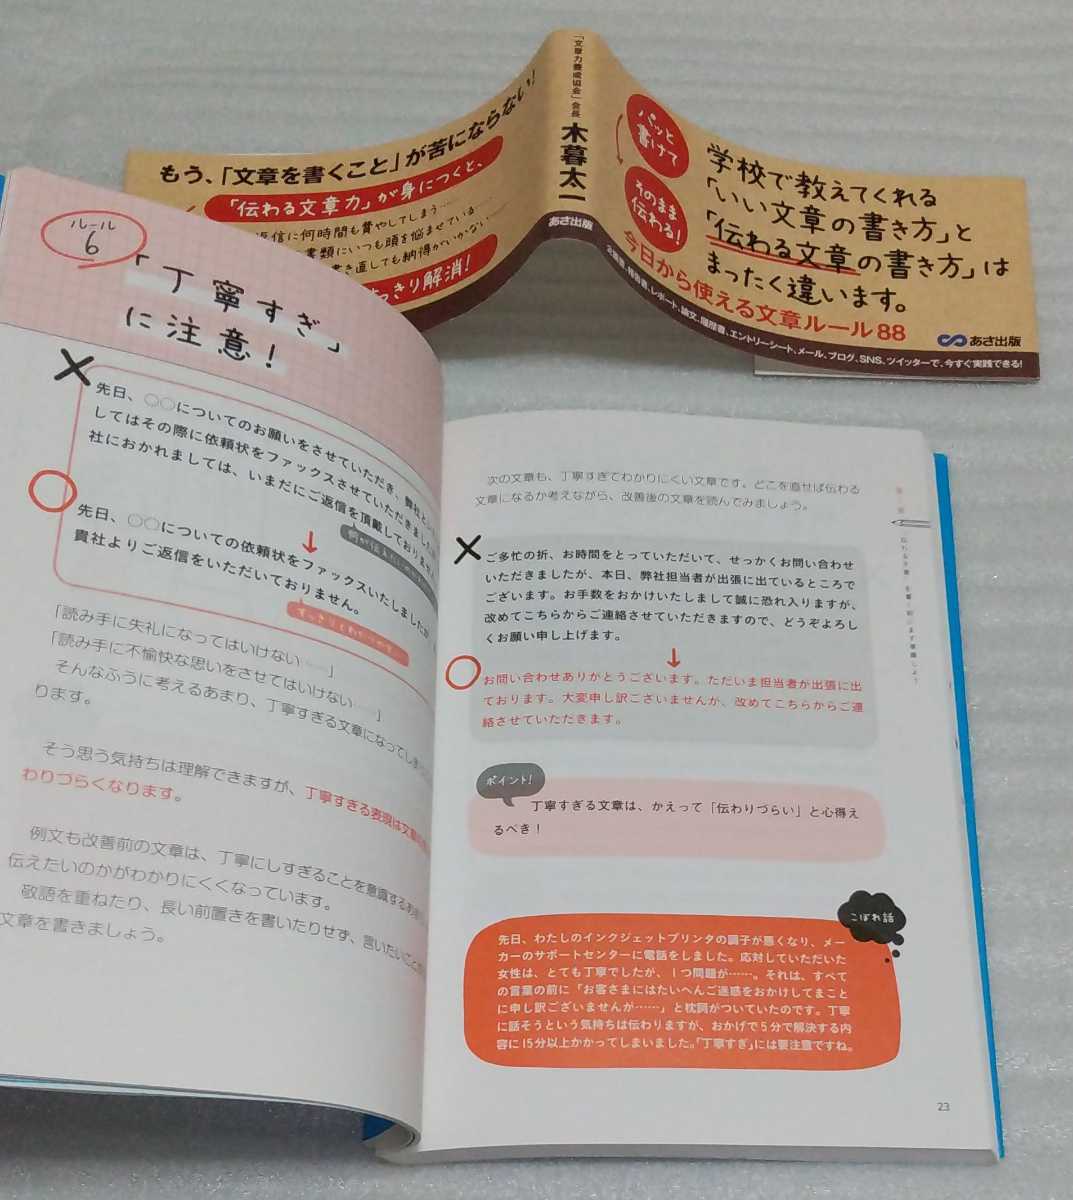 もう、「文章を書くこと」が苦にならない!
「伝わる文章力」が身につくと、
返信に何時間も費やしてしまう……
書類にいつも頭を悩ませている……
き直しても納得がいかない
っきり解消!
「文章力養成協会」会長
木暮太一
あさ出版
パッと
書けて
そのまま
伝わる!
学校で教えてくれる
「いい文章の書き方」と
「伝わる文章の書き方」は
まったく違います。
今日から使える文章ルール88
企画書、報告書、レポート、論文、履歴書、エントリーシート、メール、ブログ、SNS、ツイッターで、今すぐ実践できる!
あさ出版
ルール
6
「丁寧すぎ」
に注意!
先日、○○についてのお願いをさせていただき、弊社と
してはその際に依頼状をファックスさせていただきました
社におかれましては、いまだにご返信を頂戴しておりませ
先日、○○についての依頼状をファックスいたしましたが
貴社よりご返信をいただいておりません。
「読み手に失礼になってはいけない……」
「読み手に不愉快な思いをさせてはいけない……」
そんなふうに考えるあまり、丁寧すぎる文章になってし
ります。
そう思う気持ちは理解できますが、丁寧すぎる表現は文章
わりづらくなります。
例文も改善前の文章は、丁寧にしすぎることを意識するあ
伝えたいのかがわかりにくくなっています。
敬語を重ねたり、長い前置きを書いたりせず、言いたいこと
文章を書きましょう。
次の文章も、丁寧すぎてわかりにくい文章です。どこを直せば伝わる
文章になるか考えながら、改善後の文章を読んでみましょう。
ご多忙の折、お時間をとっていただいて、せっかくお問い合わせ
いただきましたが、本日、弊社担当者が出張に出ているところで
ございます。お手数をおかけいたしまして誠に恐れ入りますが、
改めてこちらからご連絡させていただきますので、どうぞよろし
くお願い申し上げます。
お問い合わせありがとうございます。ただいま担当者が出張に出
ております。大変申し訳ございませんが、改めてこちらからご連
絡させていただきます。
ポイント!
丁寧すぎる文章は、かえって「伝わりづらい」と心得え
るべき!
こぼれ話
先日、わたしのインクジェットプリンタの調子が悪くなり、メー
カーのサポートセンターに電話をしました。応対していただいた
女性は、とても丁寧でしたが、1つ問題が……。それは、すべて
の言葉の前に「お客さまにはたいへんご迷惑をおかけしてまこと
に申し訳ございませんが……」と枕詞がついていたのです。丁寧
に話そうという気持ちは伝わりますが、おかげで5分で解決する内
容に15分以上かかってしまいました。「丁寧すぎ」には要注意ですね。
23